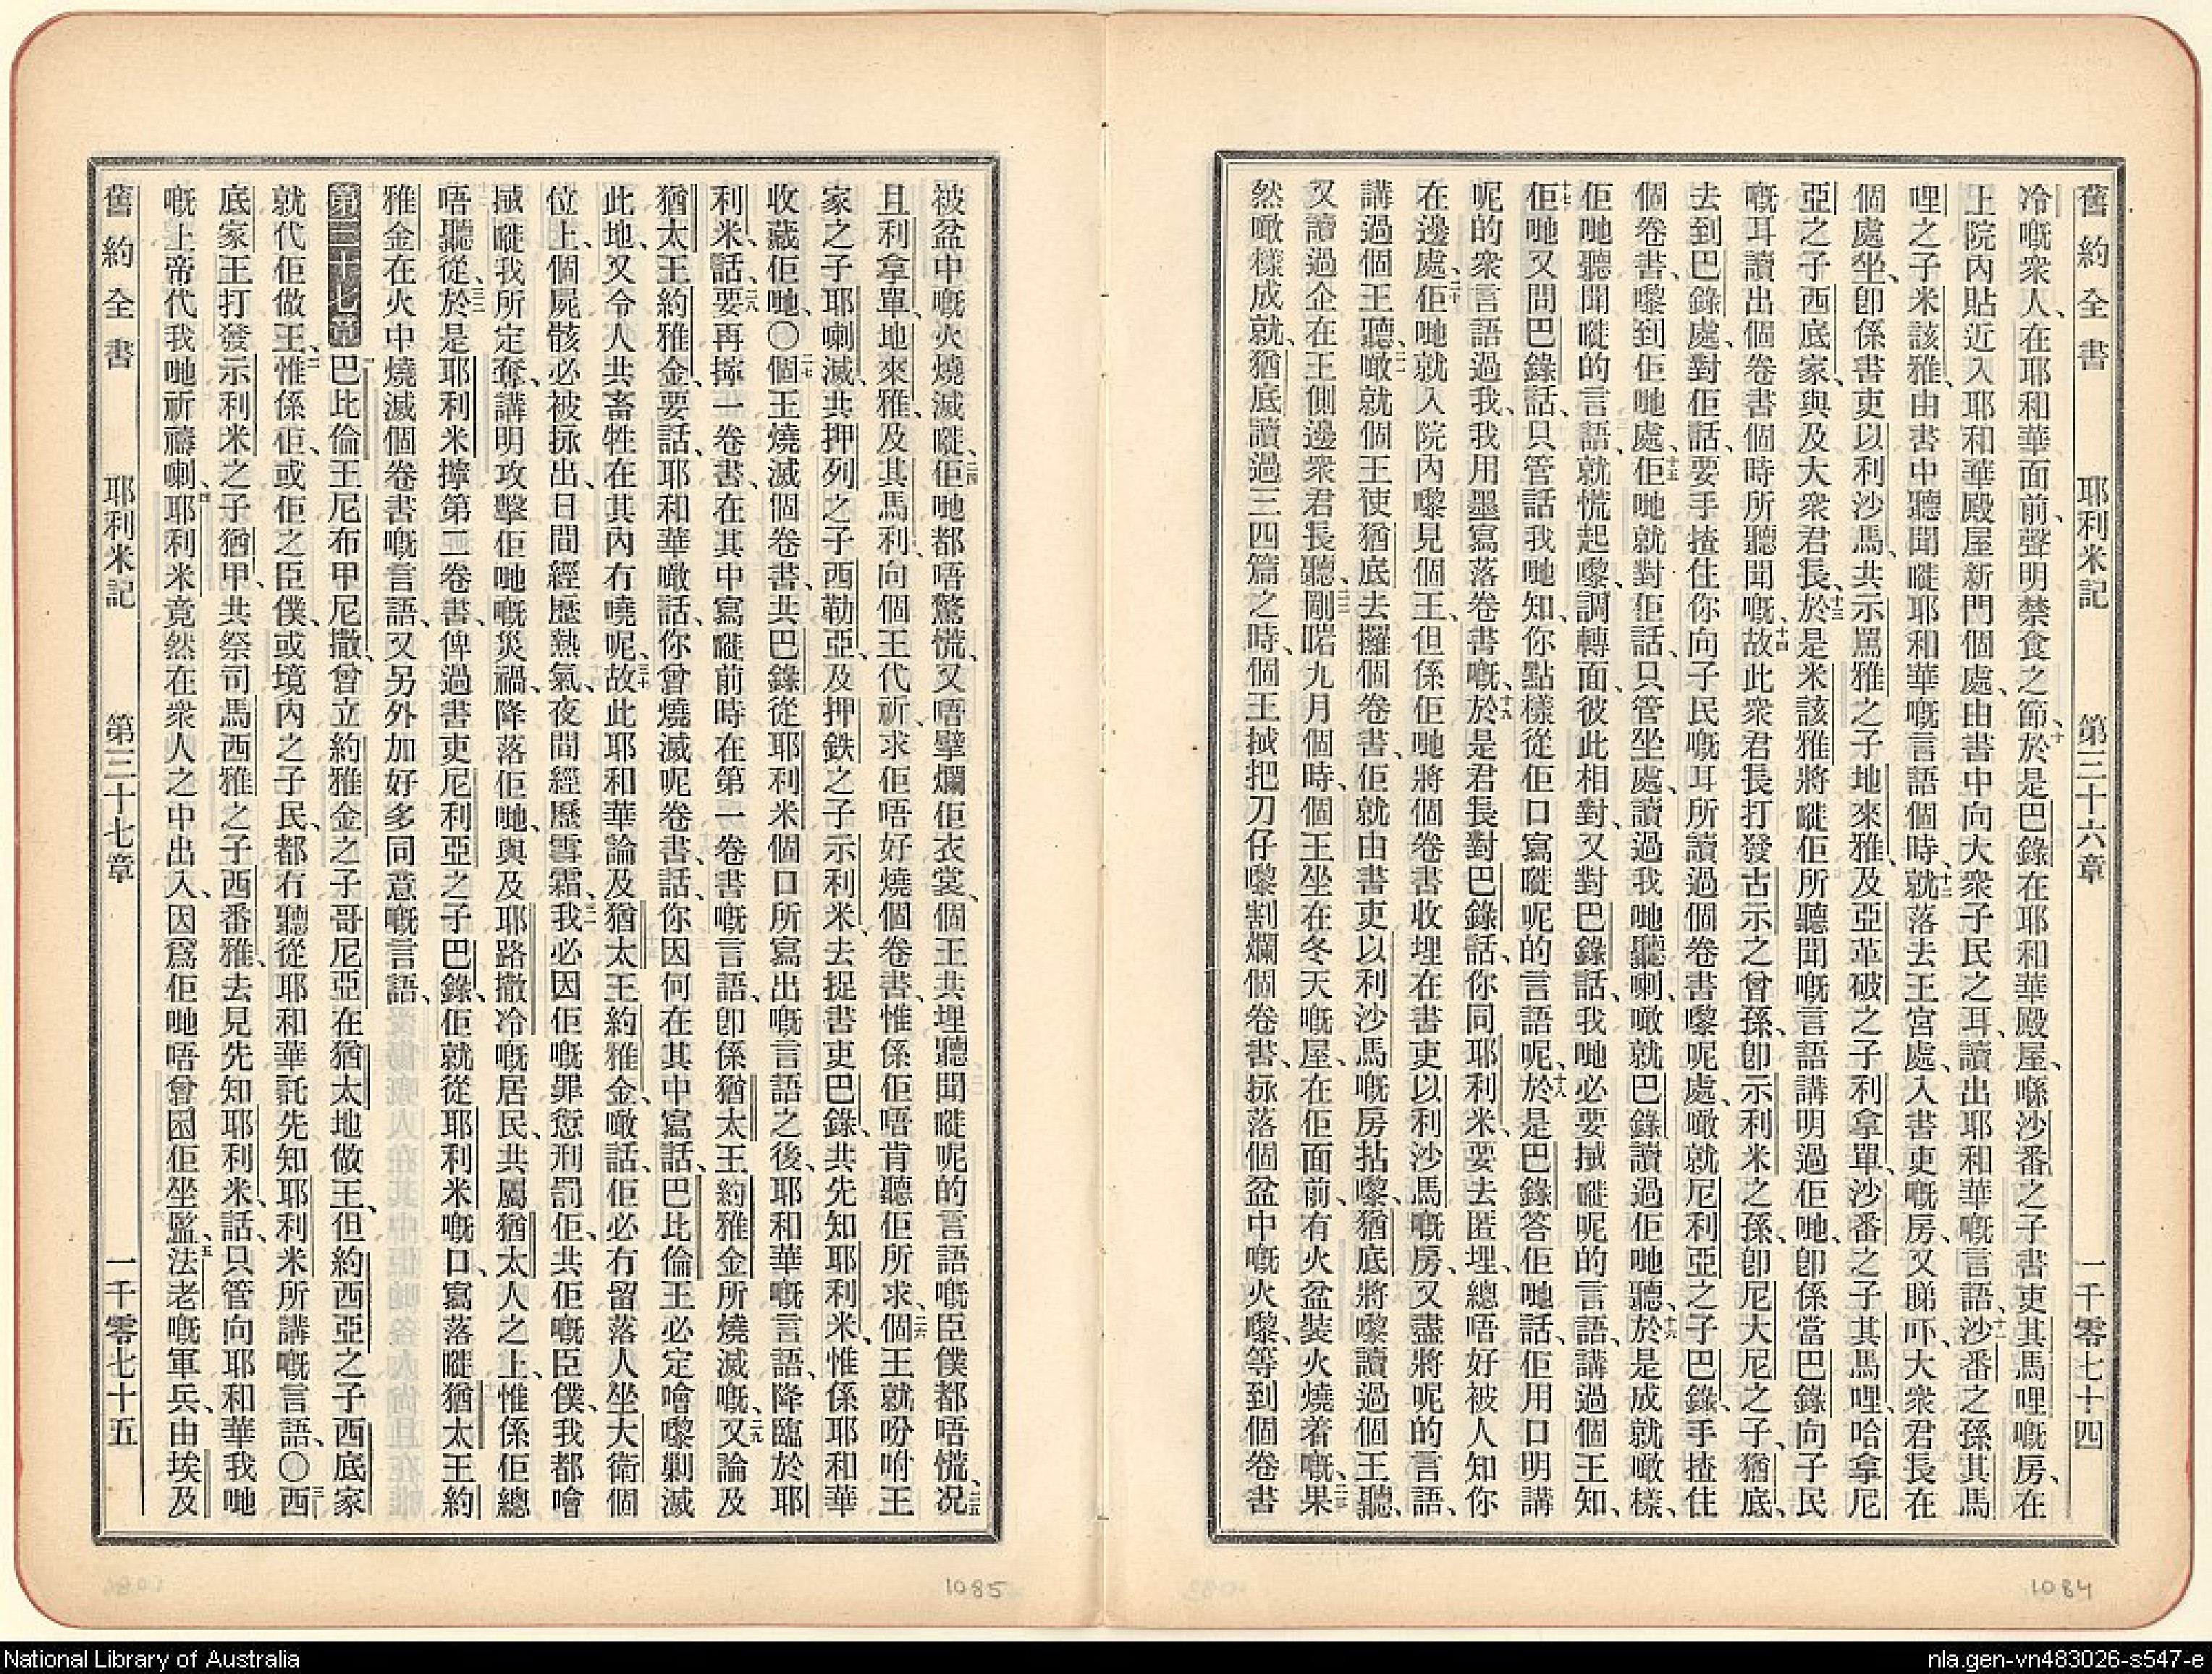 舊約全書 耶利米記 第三十六章 一千零七十四
冷嘅衆人、在耶和華面前、聲明禁食之節、十於是巴錄在耶和華殿屋、喺沙番之子書吏其馬哩嘅房、在
上院內貼近入耶和華殿屋新門個處、由書中向大衆子民之耳、讀出耶和華嘅言語、十一沙番之孫其馬
哩之子米該雅、由書中聽聞嘥耶和華嘅言語個時、十二就落去王宮處、入書吏嘅房、又睇吓大衆君長在
個處坐、卽係書吏以利沙馬、共示罵雅之子地來雅、及亞革破之子利拿單、沙番之子其馬哩、哈拿尼
亞之子西底家、與及大衆君長、十三於是米該雅將嘥佢所聽聞嘅言語講明過佢哋、卽係當巴錄向子民
嘅耳讀出個卷書個時所聽聞嘅、十四故此衆君長打發古示之曾孫、卽示利米之孫、卽尼大尼之子、猶底、
去到巴錄處、對佢話、要手揸住你向子民嘅耳所讀過個卷書嚟呢處、噉就尼利亞之子巴錄、手揸住
個卷書、嚟到佢哋處、十五佢哋就對佢話、只管坐處、讀過我哋聽喇、噉就巴錄讀過佢哋聽、十六於是成就噉樣、
佢哋聽聞嘥的言語、就慌起嚟、調轉面、彼此相對、又對巴錄話、我哋必要搣嘥呢的言語、講過個王知、
十七佢哋又問巴錄話、只管話我哋知、你點樣從佢口寫嘥呢的言語呢、十八於是巴錄答佢哋話、佢用口明講
呢的衆言語過我、我用墨寫落卷書嘅、十九於是君長對巴錄話、你同耶利米、要去匿埋、總唔好被人知你
在邊處、二十佢哋就入院內嚟見個王、但係佢哋將個卷書收埋在書吏以利沙馬嘅房、又盡將呢的言語、
講過個王聽、二一噉就個王使猶底去攞個卷書、佢就由書吏以利沙馬嘅房拈嚟、猶底將嚟讀過個王聽、
又讀過企在王側邊衆君長聽、二二剛啱九月個時、個王坐在冬天嘅屋、在佢面前、有火盆裝火燒着嘅、二三果
然噉樣成就、猶底讀過三四篇之時、個王搣把刀仔嚟割爛個卷書、掁落個盆中嘅火嚟、等到個卷書
被盆中嘅火燒滅嘥、二四佢哋都唔驚慌、又唔擘爛佢衣裳、個王共埋聽聞嘥呢的言語嘅臣僕都唔慌、二五况
且利拿單、地來雅、及其馬利、向個王代祈、求佢唔好燒個卷書、惟係佢唔肯聽佢所求、二六個王就吩咐王
家之子耶喇滅、共押列之子西勒亞、及押鉄之子示利米、去捉書吏巴錄、共先知耶利米、惟係耶和華
收藏佢哋、〇二七個王燒滅個卷書、共巴錄從耶利米個口所寫出嘅言語之後、耶和華嘅言語、降臨於耶
利米、話、二八要再攞一卷書、在其中寫嘥前時在第一卷書嘅言語、卽係猶太王約雅金所燒滅嘅、二九又論及
猶太王約雅金、要話、耶和華噉話、你曾燒滅呢卷書、話、你因何在其中寫話、巴比倫王必定噲嚟剿滅
此地、又令人共畜牲在其內冇曉呢、三十故此耶和華論及猶太王約雅金噉話、佢必冇留落人坐大衛個
位上、個屍骸必被掁出、日間經歷熱氣、夜間經歷雪霜、三一我必因佢嘅罪愆刑罰佢、共佢嘅臣僕、我都噲
搣嘥我所定奪、講明攻擊佢哋嘅災禍、降落佢哋、與及耶路撒冷嘅居民、共屬猶太人之上、惟係佢總
唔聽從、三二於是耶利米攞第二卷書、俾過書吏尼利亞之子巴錄、佢就從耶利米嘅口、寫落嘥猶太王約
雅金在火中燒滅個卷書嘅言語、又另外加好多同意嘅言語、
第三十七章 一巴比倫王尼布甲尼撒、曾立約雅金之子哥尼亞在猶太地做王、但約西亞之子西底家
就代佢做王、二惟係佢、或佢之臣僕、或境內之子民、都冇聽從耶和華託先知耶利米所講嘅言語、〇三西
底家王打發示利米之子猶甲、共祭司馬西雅之子西番雅、去見先知耶利米、話、只管向耶和華我哋
嘅上帝代我哋祈禱喇、四耶利米竟然在衆人之中出入、因爲佢哋唔曾囚佢坐監、五法老嘅軍兵、由埃及
舊約全書 耶利米記 第三十七章 一千零七十五
1085
1084
National Library of Australia
nla.gen-vn483026-s547-e